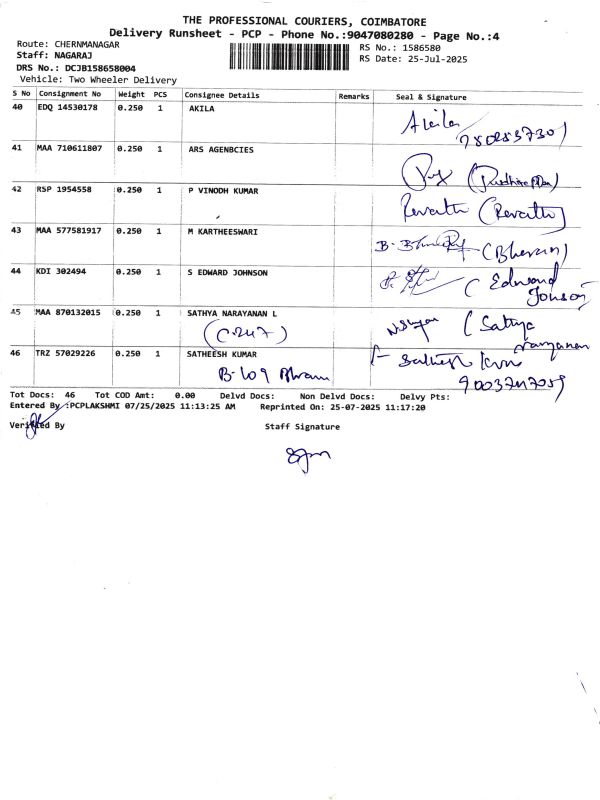 THE PROFESSIONAL COURIERS, COIMBATORE
Delivery Runsheet - PCP - Phone No.:9047080280 - Page No.:4
Route: CHERNMANAGAR
Staff: NAGARAJ
DRS No.: DCJB158658004
Vehicle: Two Wheeler Delivery
RS No.: 1586580
RS Date: 25-Jul-2025
S No Consignment No Weight PCS Consignee Details Remarks Seal & Signature
40 EDQ 14530178 0.250 1 AKILA Akila
41 MAA 710611807 0.250 1 ARS AGENBCIES
42 RSP 1954558 0.250 1 P VINODH KUMAR Revathi (Revathi)
43 MAA 577581917 0.250 1 M KARTHEESWARI
44 KDI 302494 0.250 1 S EDWARD JOHNSON (Edward Jonson)
45 MAA 870132015 0.250 1 SATHYA NARAYANAN L (Sathya narayanan
(C-247)
46 TRZ 57029226 0.250 1 SATHEESH KUMAR
B-109
Tot Docs: 46 Tot COD Amt: 0.00 Delvd Docs: Non Delvd Docs: Delvy Pts:
Entered By :PCPLAKSHMI 07/25/2025 11:13:25 AM Reprinted On: 25-07-2025 11:17:20
Verified By Staff Signature